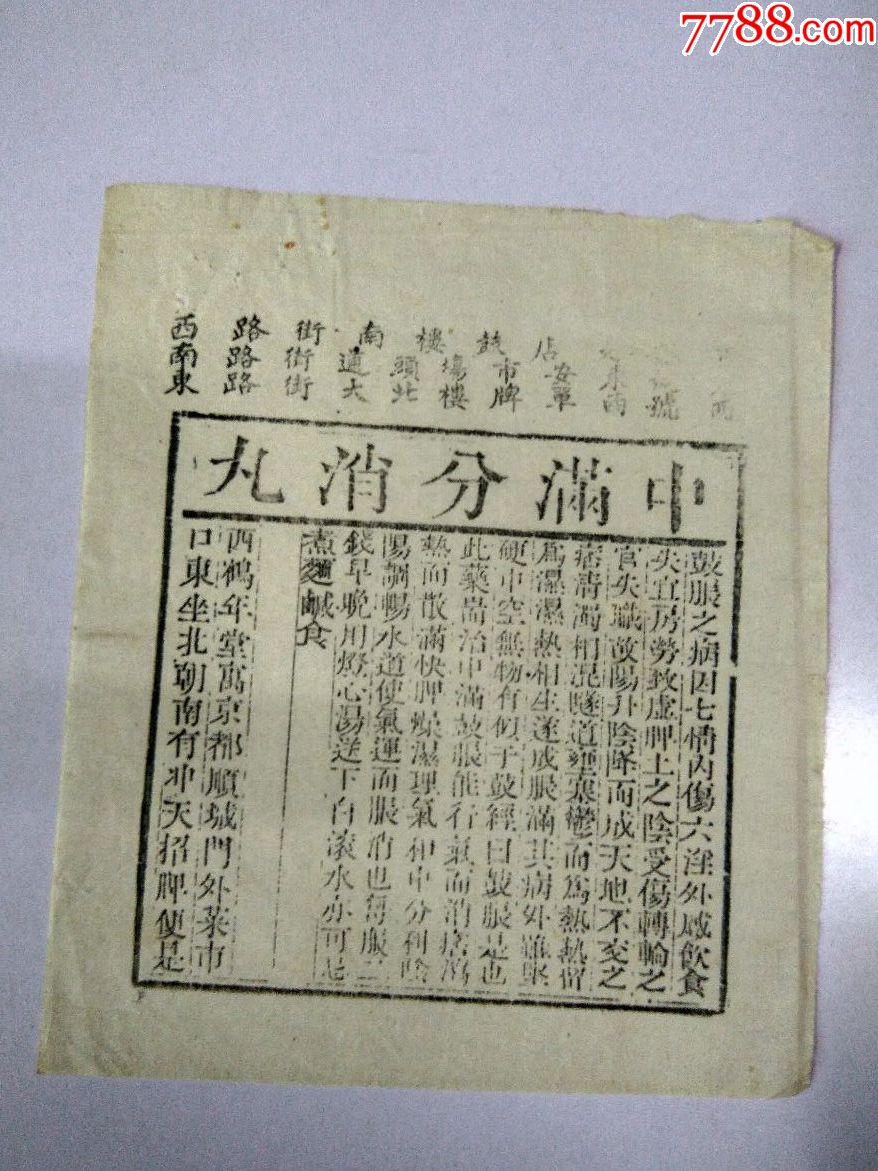 店鼓樓南街路西
東安市場頭道街路南
號西單牌樓北大街路東
中滿分消丸
鼓脹之病因七情內傷六淫外感飲食
失宜房勞致虛脾土之陰受傷轉輸之
官失職故陽升陰降而成天地不交之
痞清濁相混隧道壅塞鬱而爲熱熱留
爲濕濕熱相生遂成脹滿其病外雖堅
硬中空無物有似于鼓經曰鼓脹是也
此藥耑治中滿鼓脹能行氣而消痞瀉
熱而散滿快脾燥濕理氣和中分利陰
陽調暢水道使氣運而脹消也每服二
錢早晚用燈心湯送下白滾水亦可忌
煮麵鹹食
西鶴年堂寓京都順城門外菜市
口東坐北朝南有冲天招牌便是
7788.com